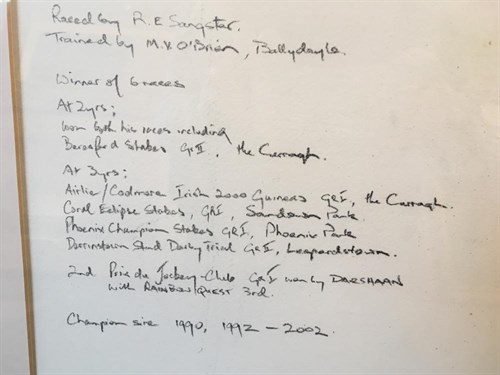 Raced by R. E Sangster.
Trained by M.V. O'Brien, Ballydoyle.
Winner of 6 races
At 2yrs;
won both his races including
Beresford Stakes Gr II, the Curragh.
At 3yrs;
Airlie/Coolmore Irish 2000 Guineas Gr I, the Curragh.
Coral Eclipse Stakes, Gr I, Sandown Park
Phoenix Champion Stakes Gr I, Phoenix Park
Derrinstown Stud Derby Trial Gr II, Leopardstown.
2nd Prix du Jockey-Club Gr I won by DARSHAAN
with RAINBOW QUEST 3rd.
Champion sire 1990, 1992 – 2002.